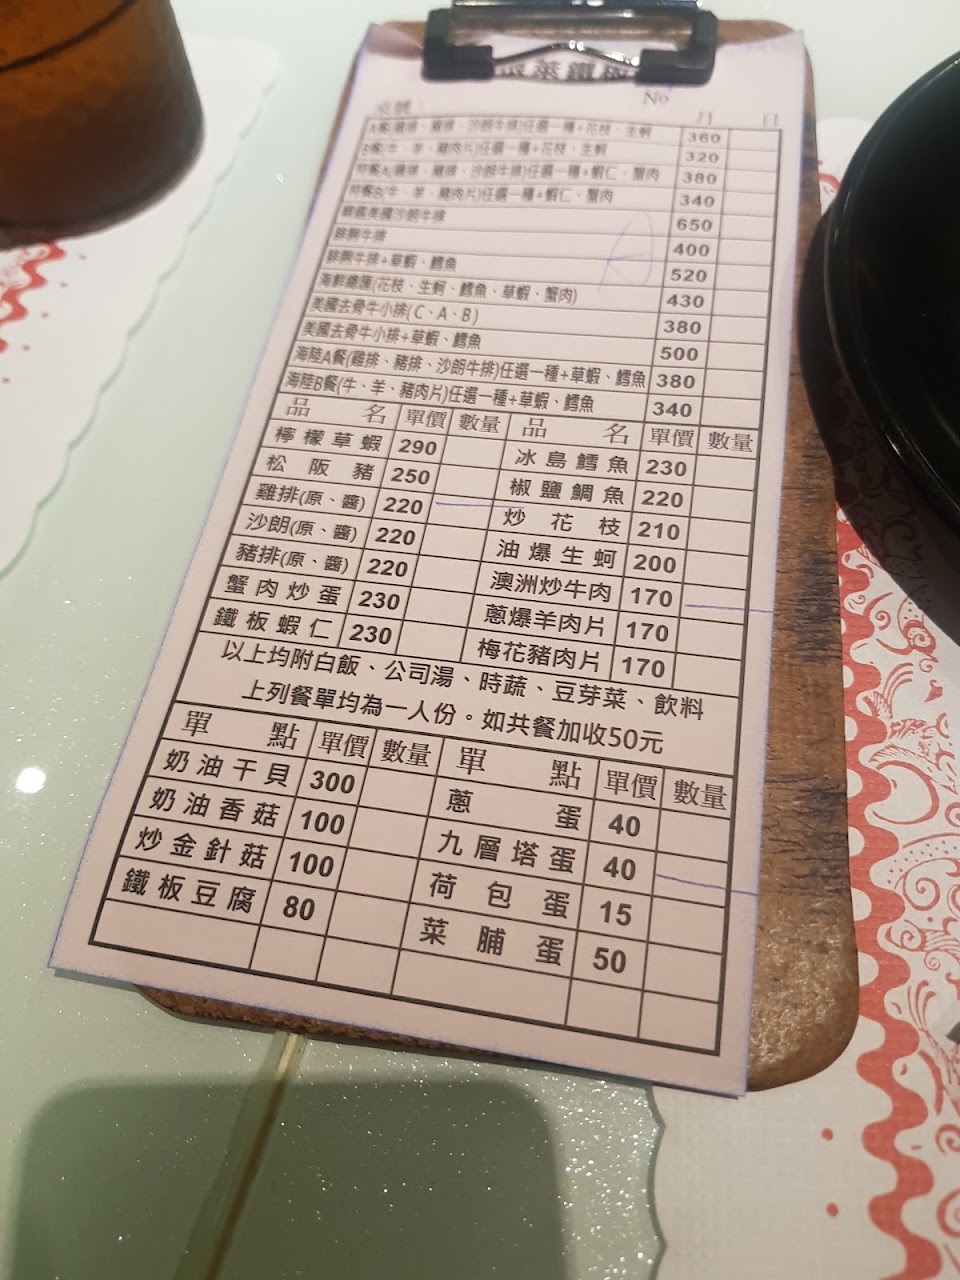 萊鐵板
No
桌號：
月 日
A餐(雞排、豬排、沙朗牛排)任選一種+花枝、生蚵 360
B餐(牛、羊、豬肉片)任選一種+花枝、生蚵 320
特餐A(雞排、豬排、沙朗牛排)任選一種+蝦仁、蟹肉 380
特餐B(牛、羊、豬肉片)任選一種+蝦仁、蟹肉 340
美國沙朗牛排 650
牛排 400
牛排+草蝦、鱈魚 520
海鮮總匯(花枝、生蚵、鱈魚、草蝦、蟹肉) 430
美國去骨牛小排(C、A、B) 380
美國去骨牛小排+草蝦、鱈魚 500
海陸A餐(雞排、豬排、沙朗牛排)任選一種+草蝦、鱈魚 380
海陸B餐(牛、羊、豬肉片)任選一種+草蝦、鱈魚 340
品名 單價 數量 品名 單價 數量
檸檬草蝦 290 冰島鱈魚 230
松阪豬 250 椒鹽鯛魚 220
雞排(原、醬) 220 炒花枝 210
沙朗(原、醬) 220 油爆生蚵 200
豬排(原、醬) 220 澳洲炒牛肉 170
蟹肉炒蛋 230 蔥爆羊肉片 170
鐵板蝦仁 230 梅花豬肉片 170
以上均附白飯、公司湯、時蔬、豆芽菜、飲料
上列餐單均為一人份。如共餐加收50元
單點 單價 數量 單點 單價 數量
奶油干貝 300 蔥蛋 40
奶油香菇 100 九層塔蛋 40
炒金針菇 100 荷包蛋 15
鐵板豆腐 80 菜脯蛋 50